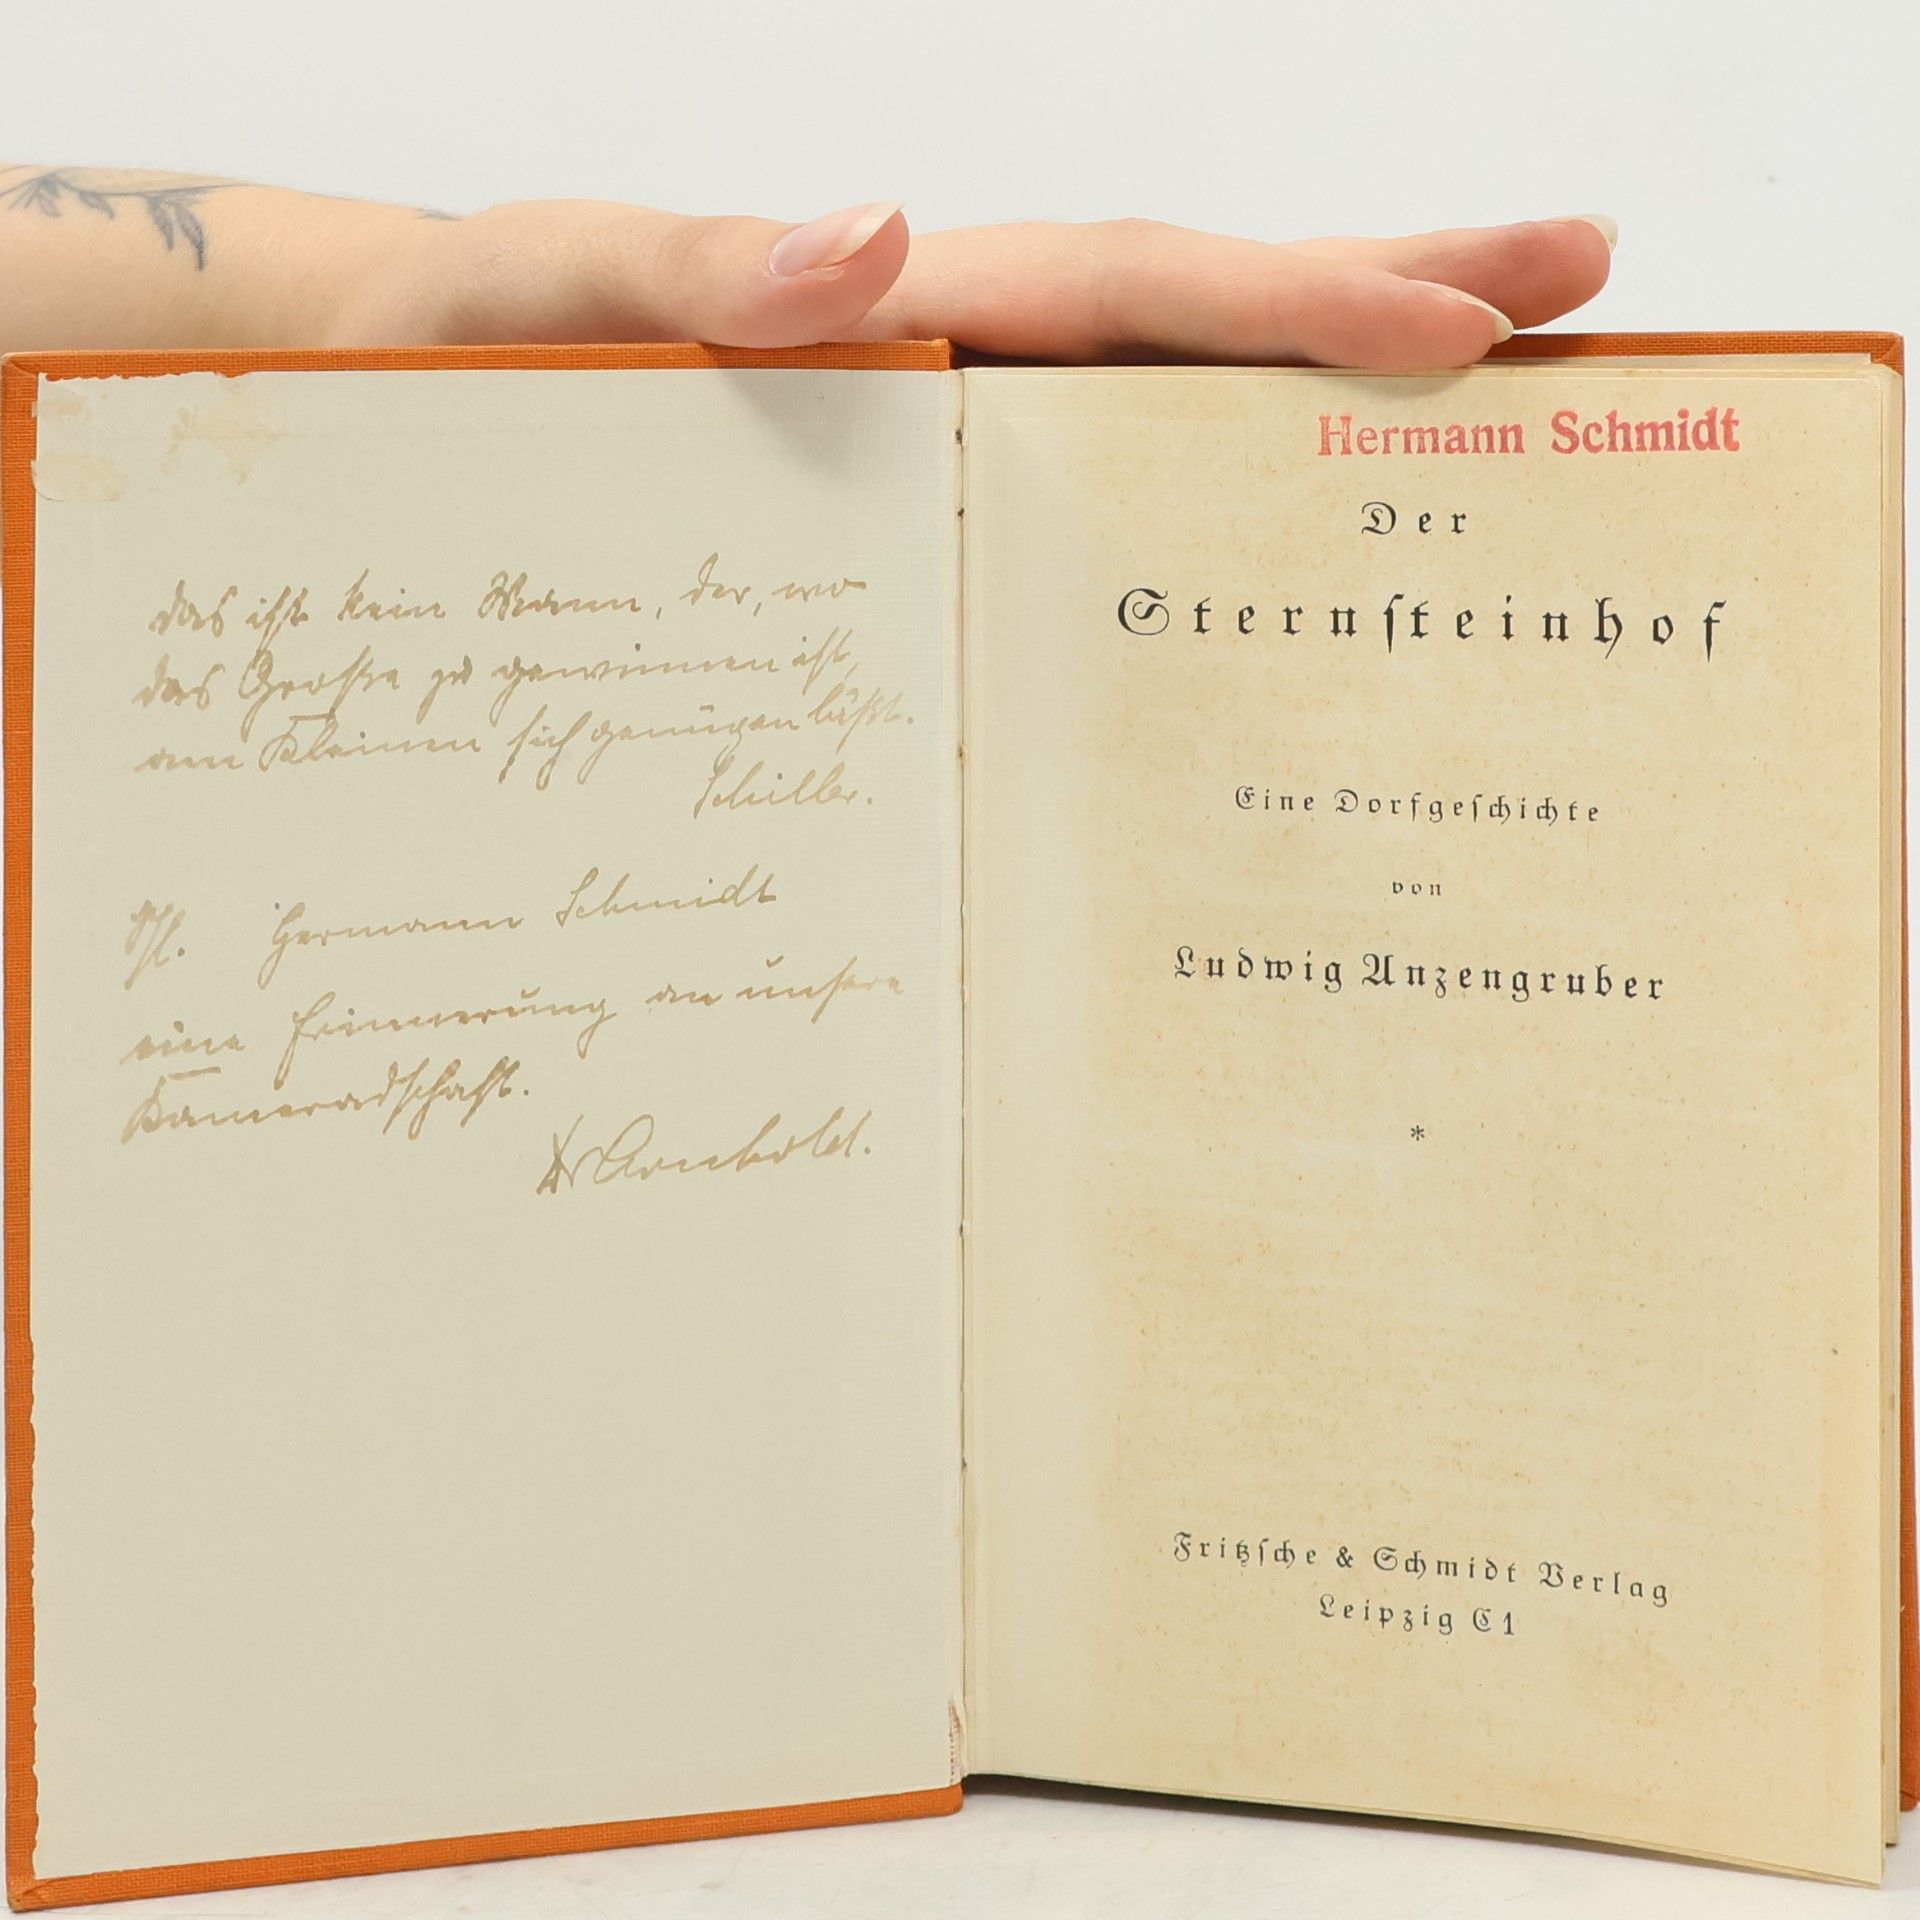 das ist kein Mann, der, wo
das Große zu gewinnen ist,
am Kleinen sich genügen läßt.
Schiller.
Hermann Schmidt
eine Erinnerung an unsere
Kameradschaft.
Arnhold.
Hermann Schmidt
Der
Sternsteinhof
Eine Dorfgeschichte
von
Ludwig Anzengruber
*
Fritzsche & Schmidt Verlag
Leipzig C 1